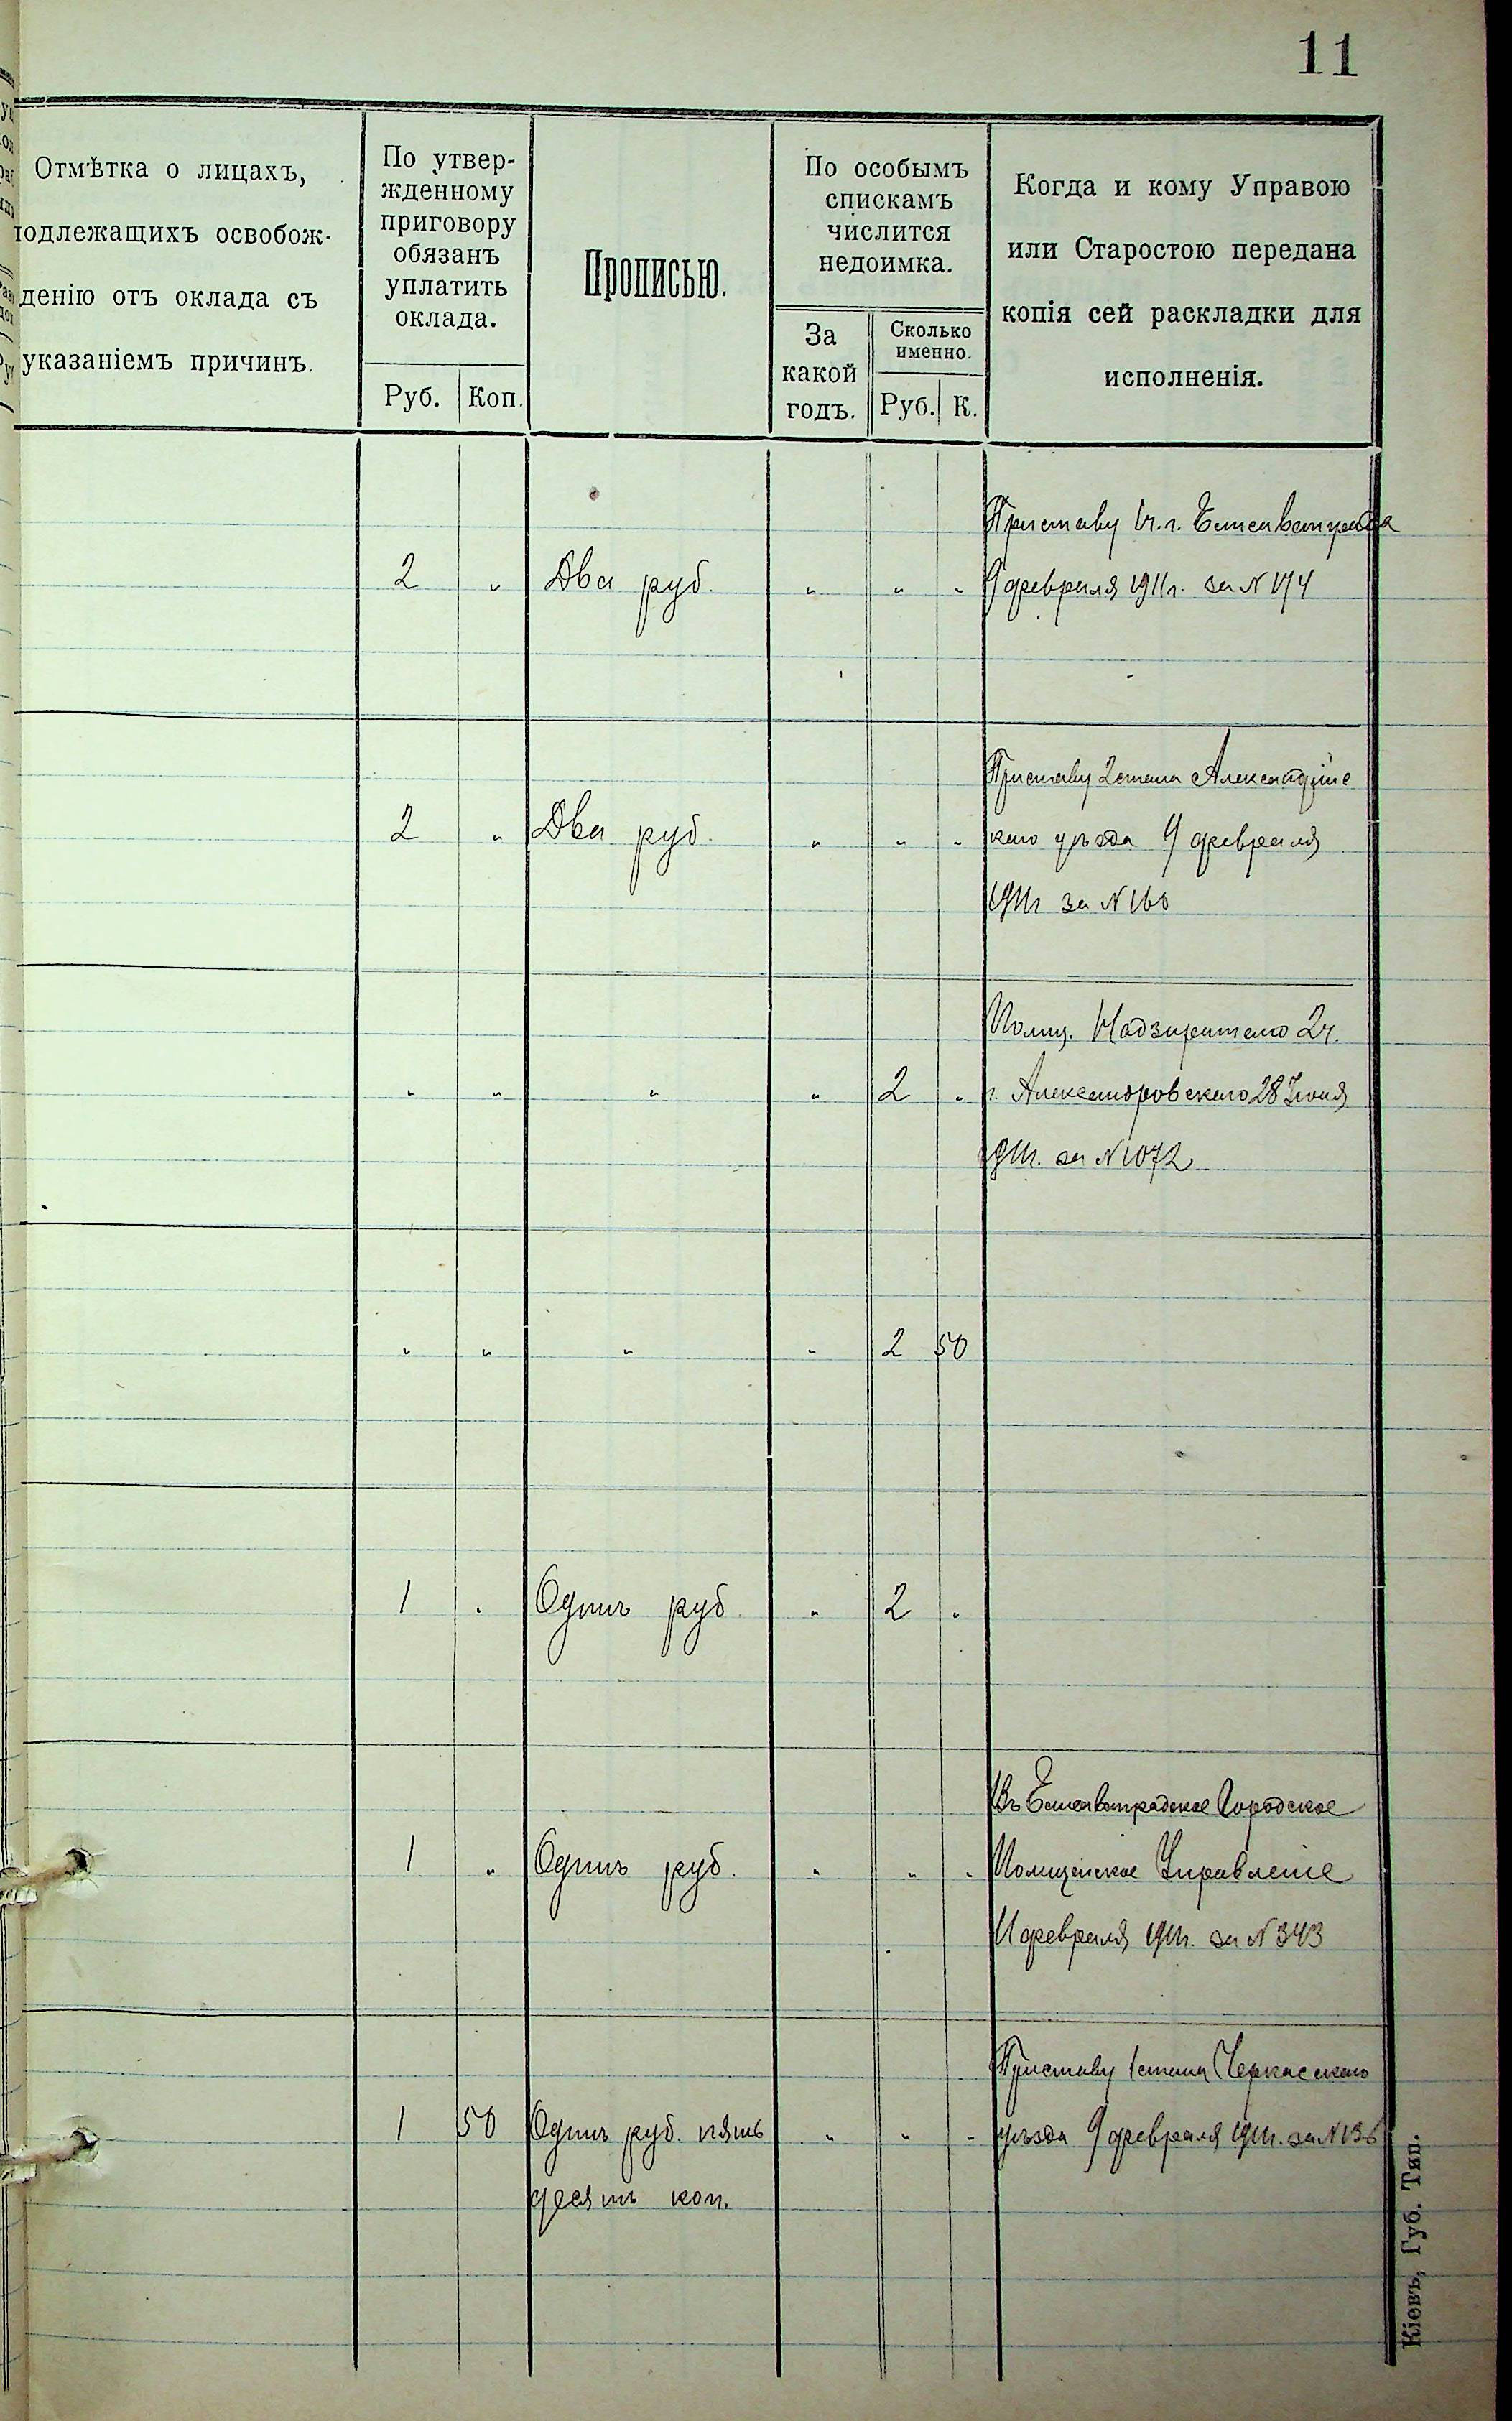 11
Отмѣтка о лицахъ,
подлежащихъ освобож-
денію отъ оклада съ
указаніемъ причинъ.
По утвер-
жденному
приговору
обязанъ
уплатить
оклада.
Руб. Коп.
Прописью.
По особымъ
спискамъ
числится
недоимка.
За
какой
годъ.
Сколько
именно.
Руб. К.
Когда и кому Управою
или Старостою передана
копія сей раскладки для
исполненія.
Приставу 1 ч. г. Елисаветграда
2 " Два руб. " " " 9 февраля 1911 г. за № 174
Приставу 2 стана Александрійс
2 " Два руб. " " " каго уѣзда 9 февраля
1911 г за № 160
Полиц. Надзирателю 2 ч.
" " " " 2 " г. Александровскаго 28 Іюня
1911 г. за № 1072
" " " " 2 50
1 " Одинъ руб. " 2 "
Въ Елисаветградское Городское
1 " Одинъ руб. " " " Полицейское Управленіе
11 февраля 1911 г. за № 343
Приставу 1 стана Черкасскаго
1 50 Одинъ руб. пять " " " уѣзда 9 февраля 1911 г. за № 136
десятъ коп.
Кіевъ, Губ. Тип.